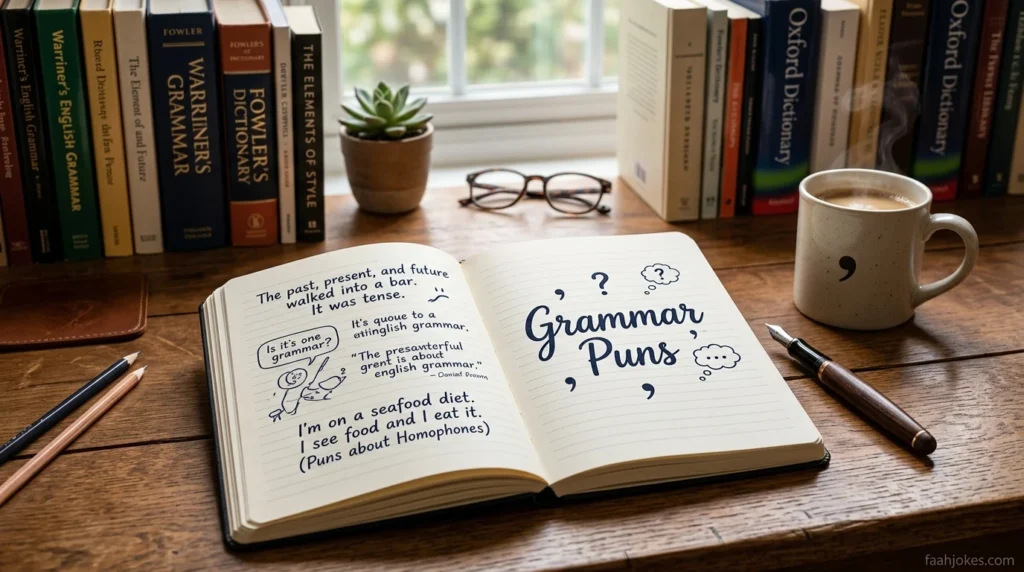 Warriner's English Grammar
Warriner's ENGLISH GRAMMAR
The Element of and Future
FOWLER
WARRINER'S GRAMMAR
FOWLER'S DICTIONARY
THE ELEMENTS OF STYLE
Oxford Dictionary
Oxford Dictionary
The past, present, and future
walked into a bar.
It was tense.
It's quoue to a
etiinglish grammar.
Is it's one
grammar?
"The presanterful
grent is about
english grammar."
I'm on a seafood diet.
I see food and I eat it.
(Puns about Homophones)
, ?
?
Grammar
Puns
,
...
, ,
,
faahjokes.com